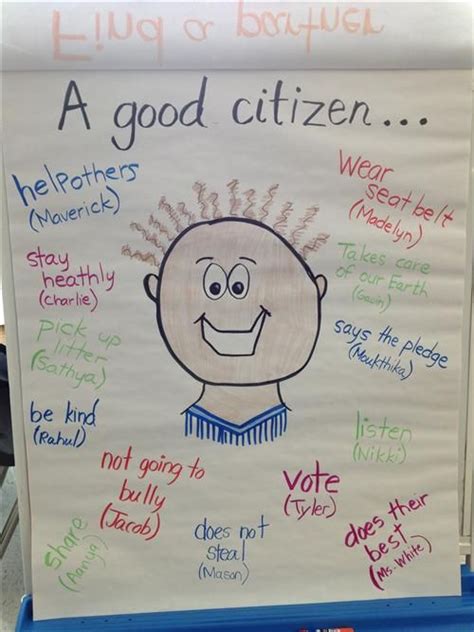 Find a partner
A good citizen...
help others
(Maverick)
Wear
seat belt
(Madelyn)
stay
heathly
(Charlie)
Takes care
of our Earth
(Gavin)
pick up
litter
(Sathya)
says the pledge
(Moukthika)
be kind
(Rahul)
listen
(Nikki)
not going to
bully
(Jacob)
vote
(Tyler)
share
(Aanya)
does not
steal
(Mason)
does their
best
(Ms. White)